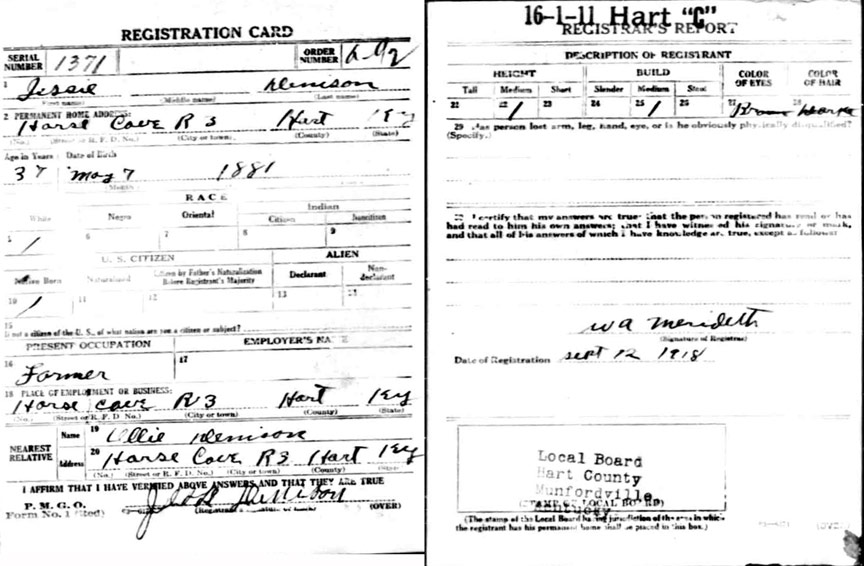 REGISTRATION CARD
SERIAL NUMBER 1371 ORDER NUMBER
1 Jessie Denison
(First name) (Middle name) (Last name)
2 PERMANENT HOME ADDRESS:
Horse Cave R 3 Hart Ky
(No.) (Street or R. F. D. No.) (City or town) (County) (State)
Age in Years Date of Birth
37 May 7 1881
(Month)
RACE
White Negro Oriental Indian
Citizen Noncitizen
5 / 6 7 8 9
U. S. CITIZEN ALIEN
Native Born Naturalized Citizen by Father's Naturalization Before Registrant's Majority Declarant Non-declarant
10 / 11 12 13 14
15
If not a citizen of the U. S., of what nation are you a citizen or subject?
PRESENT OCCUPATION EMPLOYER'S NAME
16 Farmer 17
18 PLACE OF EMPLOYMENT OR BUSINESS:
Horse Cave R 3 Hart Ky
(No.) (Street or R. F. D. No.) (City or town) (County) (State)
NEAREST RELATIVE
Name 19 Ollie Denison
Address 20 Horse Cave R3 Hart Ky
(No.) (Street or R. F. D. No.) (City or town) (County) (State)
I AFFIRM THAT I HAVE VERIFIED ABOVE ANSWERS AND THAT THEY ARE TRUE
P. M. G. O.
Form No. 1 (Red) (OVER)
16-1-11 Hart "C"
REGISTRAR'S REPORT
DESCRIPTION OF REGISTRANT
HEIGHT BUILD COLOR OF EYES COLOR OF HAIR
Tall Medium Short Slender Medium Stout
21 22 / 23 24 25 / 26 27 Brown 28
29 Has person lost arm, leg, hand, eye, or is he obviously physically disqualified?
(Specify.)
30 I certify that my answers are true; that the person registered has read or has
had read to him his own answers; that I have witnessed his signature or mark,
and that all of his answers of which I have knowledge are true, except as follows:
W A Merideth
(Signature of Registrar)
Date of Registration Sept 12 1918
Local Board
Hart County
Munfordville
Kentucky
(STAMP OF LOCAL BOARD)
(The stamp of the Local Board having jurisdiction of the area in which
the registrant has his permanent home shall be placed in this box.)
(OVER)